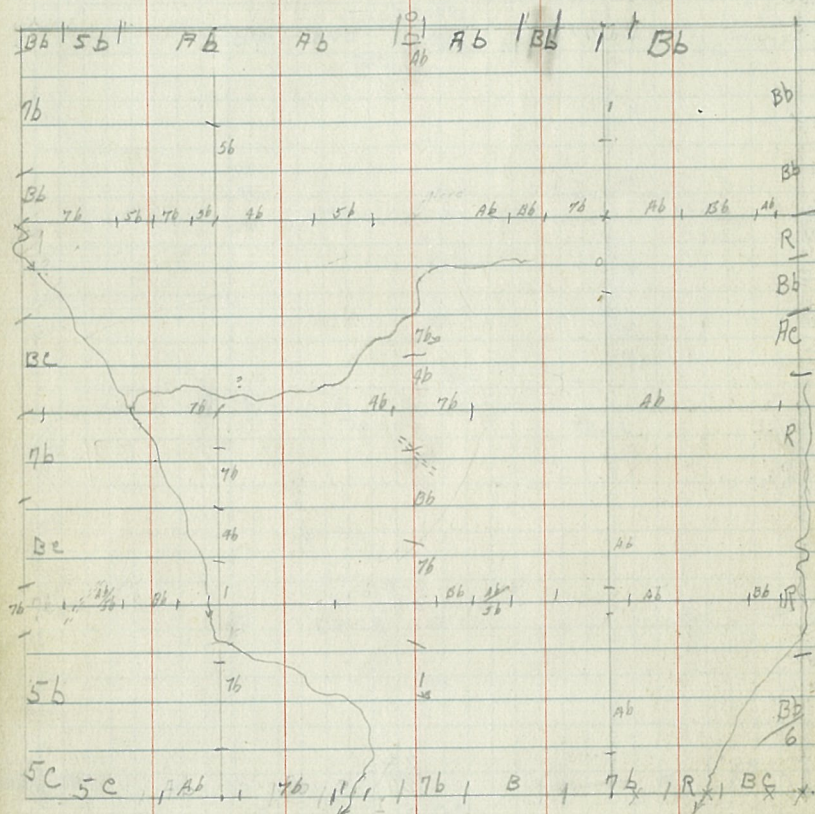 Bb 5b Ab Ab Ab Bb 1 Bb
Ab
7b Bb
5b
Bb Bb
7b 5b 7b 5b 4b 5b Ab Bb 7b Ab Bb Ab
R
Bb
7b Ac
Bc
4b
?
7b 4b 7b Ab
7b R
7b
Bb
9b Ab
Bc
7b
7b Bb Bb Ab/5b Ab Bb R
7b
5b
Ab Bb
6
5C 5c Ab 7b 7b B 7b R BC